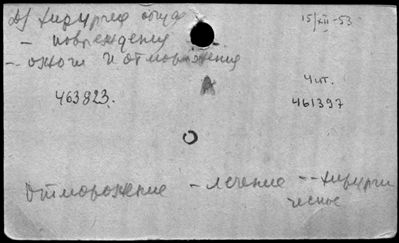 Д) хирургия общая 15/XII-53
- повреждения
- ожоги и отморожения
463823. Чит.
461397
Отморожение - лечение - хирурги
ческое